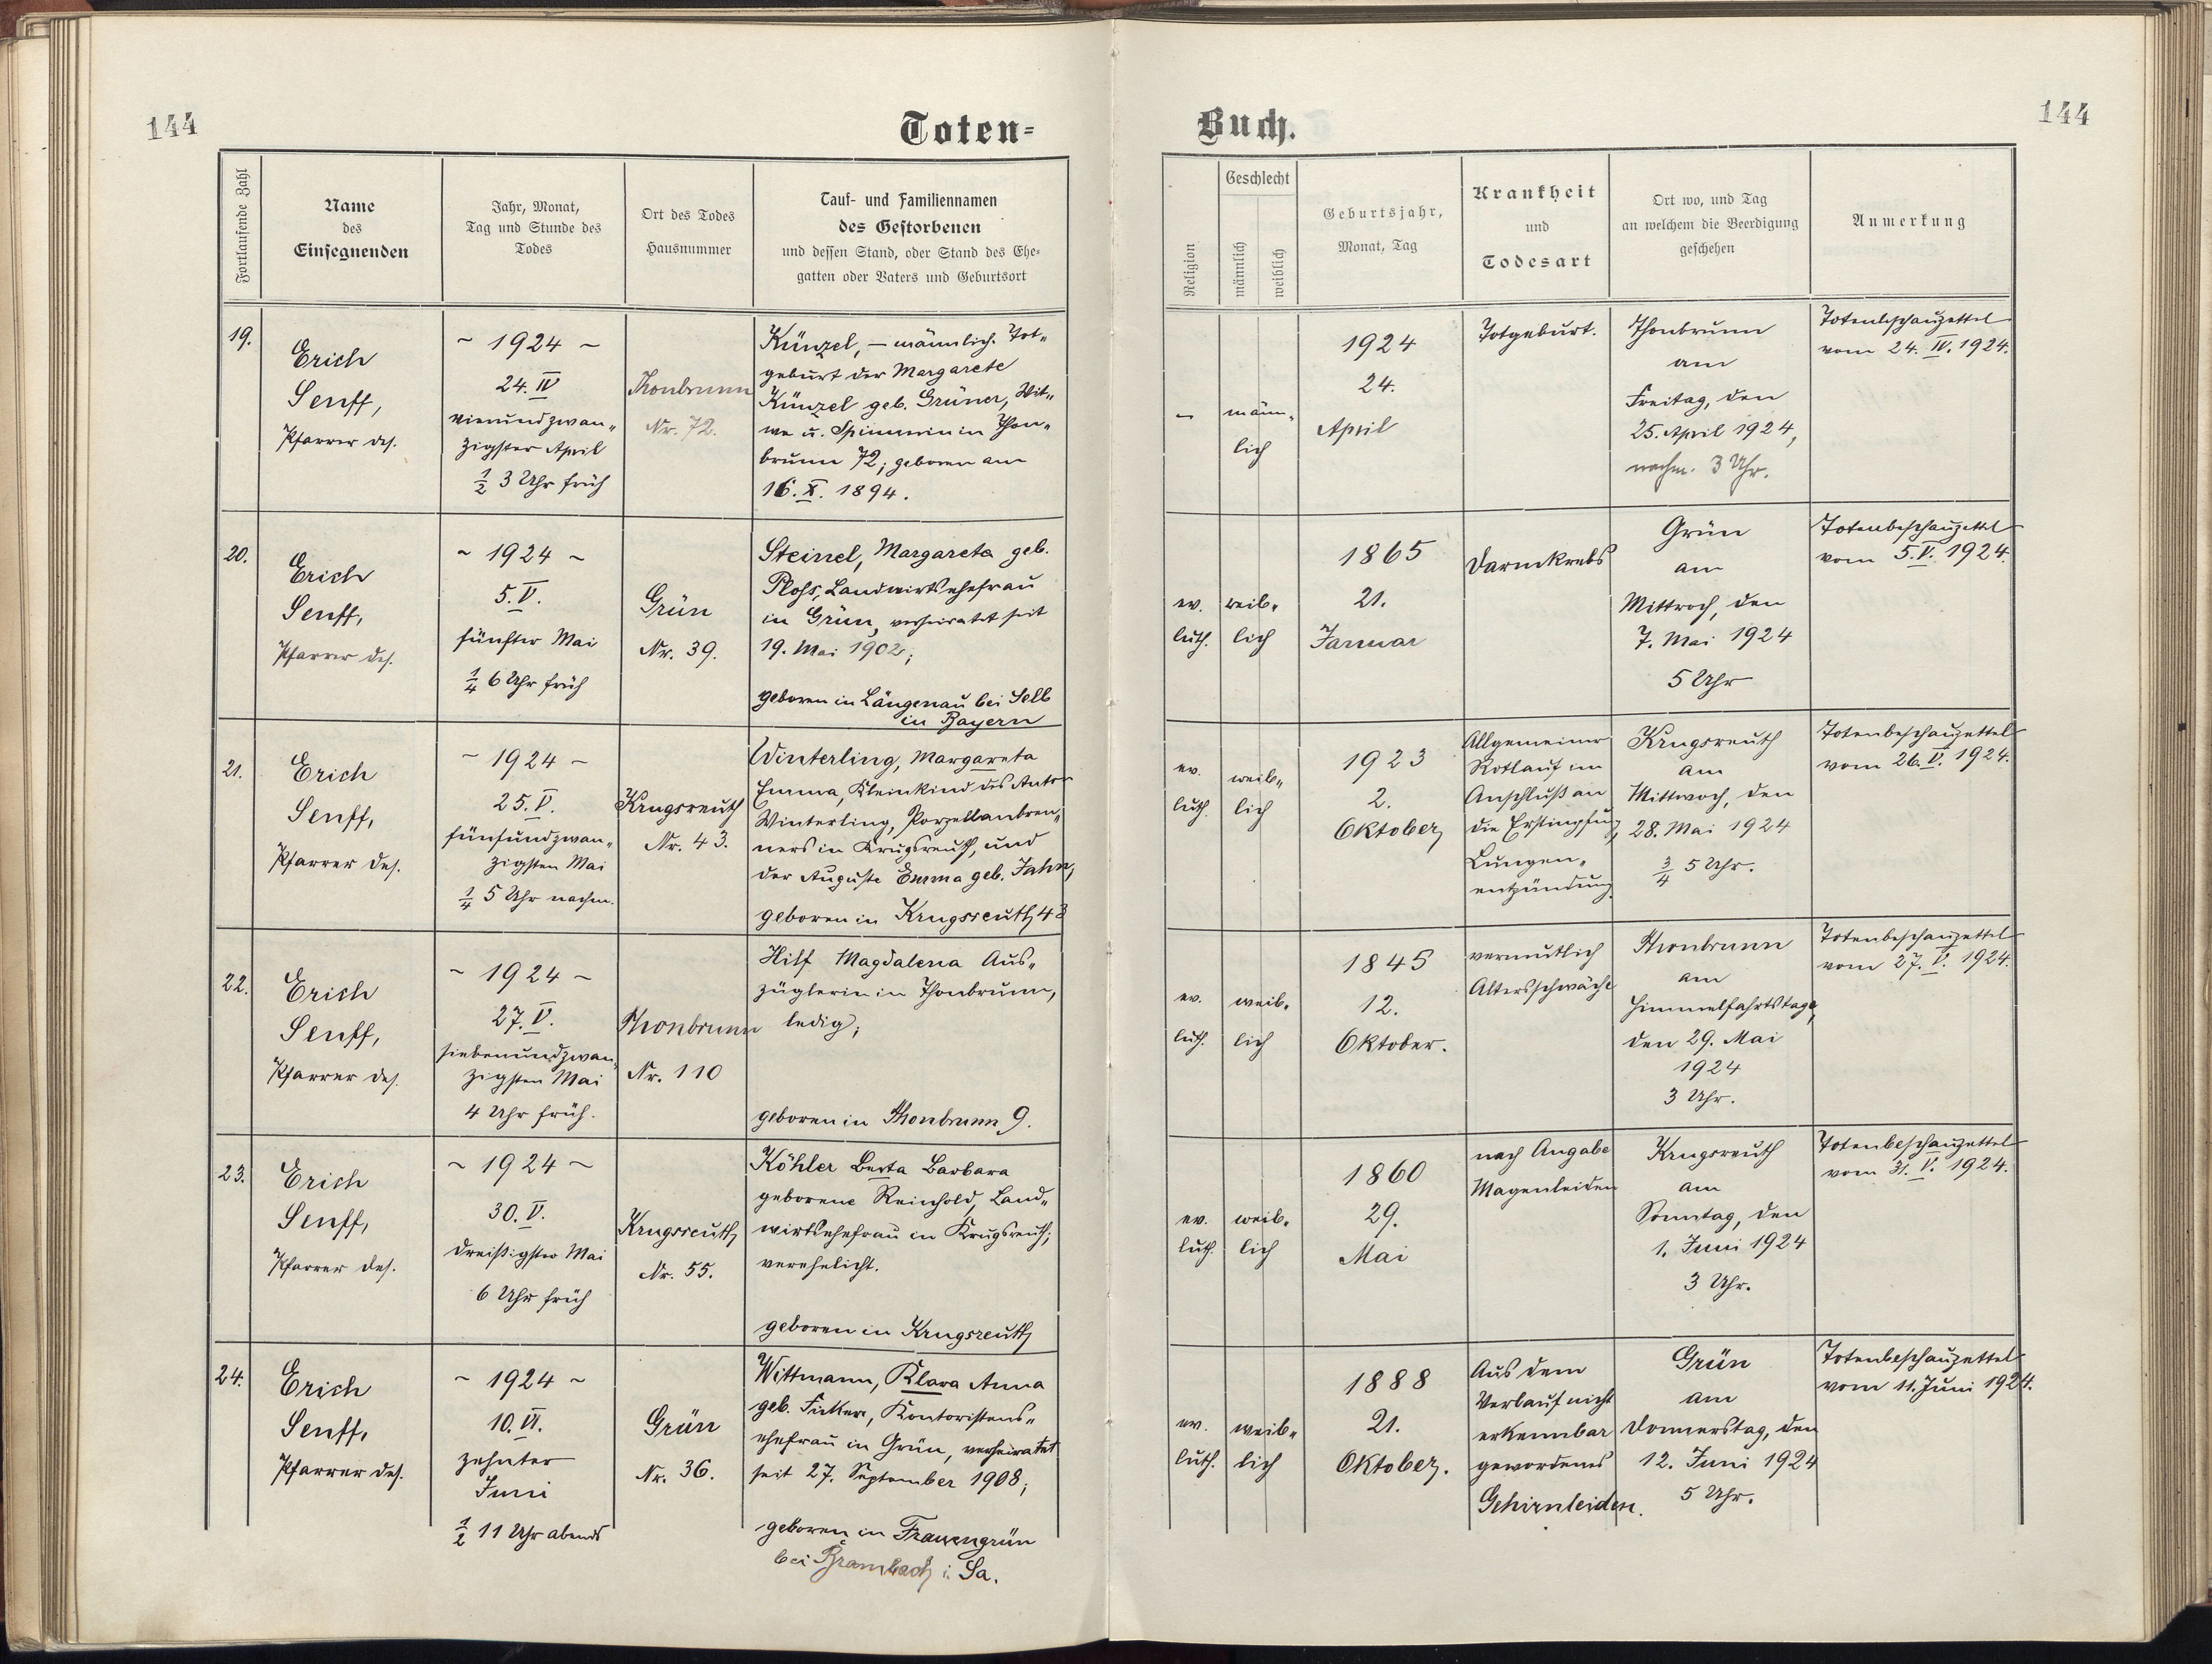 144
Toten-
Fortlaufende Zahl
Name
des
Einsegnenden
Jahr, Monat,
Tag und Stunde des
Todes
Ort des Todes
Hausnummer
Tauf- und Familiennamen
des Gestorbenen
und dessen Stand, oder Stand des Ehe-
gatten oder Vaters und Geburtsort
19.
Erich
Senff,
Pfarrer des.
~ 1924 ~
24. IV
vierundzwan-
zigster April
½ 3 Uhr früh
Thonbrunn
Nr. 72.
Künzel, – männlich. Tot-
geburt der Margarete
Künzel geb. Grüner, Wit-
we u. Spinnerin in Thon-
brunn 72; geboren am
16. X. 1894.
20.
Erich
Senff,
Pfarrer des.
~ 1924 ~
5. V.
fünfter Mai
¼ 6 Uhr früh
Grün
Nr. 39.
Steinel, Margareta geb.
Ploß, Landwirtsehefrau
in Grün, verheiratet seit
19. Mai 1902;
geboren in Längenau bei Selb
in Bayern
21.
Erich
Senff,
Pfarrer des.
~ 1924 ~
25. V.
fünfundzwan-
zigsten Mai
¼ 5 Uhr nachm.
Krugsreuth
Nr. 43.
Winterling, Margareta
Emma, Kleinkind des Anton
Winterling, Porzellanbren-
ners in Krugsreuth, und
der Auguste Emma geb. Jahn,
geboren in Krugsreuth 43
22.
Erich
Senff,
Pfarrer des.
~ 1924 ~
27. V.
siebenundzwan-
zigsten Mai
4 Uhr früh.
Thonbrunn
Nr. 110
Hilf Magdalena Aus-
züglerin in Thonbrunn,
ledig;
geboren in Thonbrunn 9.
23.
Erich
Senff,
Pfarrer des.
~ 1924 ~
30. V.
dreißigster Mai
6 Uhr früh
Krugsreuth
Nr. 55.
Köhler Berta Barbara
geborene Reinhold, Land-
wirtsehefrau in Krugsreuth;
verehelicht.
geboren in Krugsreuth
24.
Erich
Senff,
Pfarrer des.
~ 1924 ~
10. VI.
zehnter
Juni
½ 11 Uhr abends
Grün
Nr. 36.
Wittmann, Klara Anna
geb. Kontoristens-
ehefrau in Grün, verheiratet
seit 27. September 1908;
geboren in Frauengrün
bei Brambach i. Sa.
Buch.
144
Religion
Geschlecht
männlich
weiblich
Geburtsjahr,
Monat, Tag
Krankheit
und
Todesart
Ort wo, und Tag
an welchem die Beerdigung
geschehen
Anmerkung
–
männ-
lich
1924
24.
April
Totgeburt.
Thonbrunn
am
Freitag, den
25. April 1924,
nachm. 3 Uhr.
Totenbeschauzettel
vom 24. IV. 1924.
ev.
luth.
weib-
lich
1865
21.
Januar
Darmkrebs
Grün
am
Mittwoch, den
7. Mai 1924
5 Uhr
Totenbeschauzettel
vom 5. V. 1924.
ev.
luth.
weib-
lich
1923
2.
Oktober
Allgemeiner
Rotlauf im
Anschluß an
die Erstimpfung,
Lungen-
entzündung.
Krugsreuth
am
Mittwoch, den
28. Mai 1924
¾ 5 Uhr.
Totenbeschauzettel
vom 26. V. 1924.
ev.
luth.
weib-
lich
1845
12.
Oktober.
vermutlich
Altersschwäche
Thonbrunn
am
Himmelfahrtstage,
den 29. Mai
1924
3 Uhr.
Totenbeschauzettel
vom 27. V. 1924.
ev.
luth.
weib-
lich
1860
29.
Mai
nach Angabe
Magenleiden
Krugsreuth
am
Sonntag, den
1. Juni 1924
3 Uhr.
Totenbeschauzettel
vom 31. V. 1924.
ev.
luth.
weib-
lich
1888
21.
Oktober.
Aus dem
Verlauf nicht
erkennbar
gewordenes
Gehirnleiden.
Grün
am
Donnerstag, den
12. Juni 1924
5 Uhr.
Totenbeschauzettel
vom 11. Juni 1924.